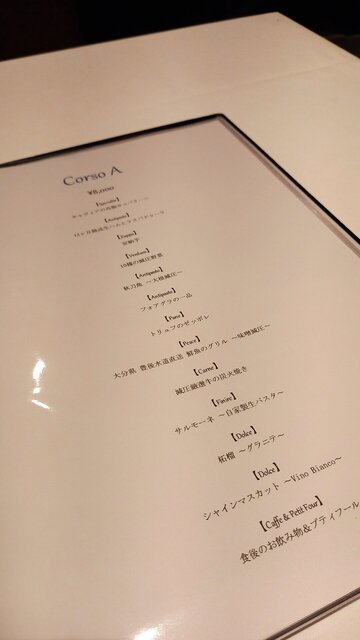 Corso A
¥8,000
【Speciale】
キャヴィアの
【Antipasto】
12ヶ月熟成生ハムと
【Zuppa】
安納芋
【Verdura】
10種の減圧野菜
【Antipasto】
秋刀魚 ～大根減圧～
【Antipasto】
フォアグラの一品
【Pane】
トリュフのゼッポレ
【Pesce】
大分県 豊後水道直送 鮮魚のグリル ～味噌減圧～
【Carne】
減圧厳選牛の炭火焼き
【Finire】
サルモーネ ～自家製生パスタ～
【Dolce】
柘榴 ～グラニテ～
【Dolce】
シャインマスカット ～Vino Bianco～
【Caffe & Petit Four】
食後のお飲み物&プティフール